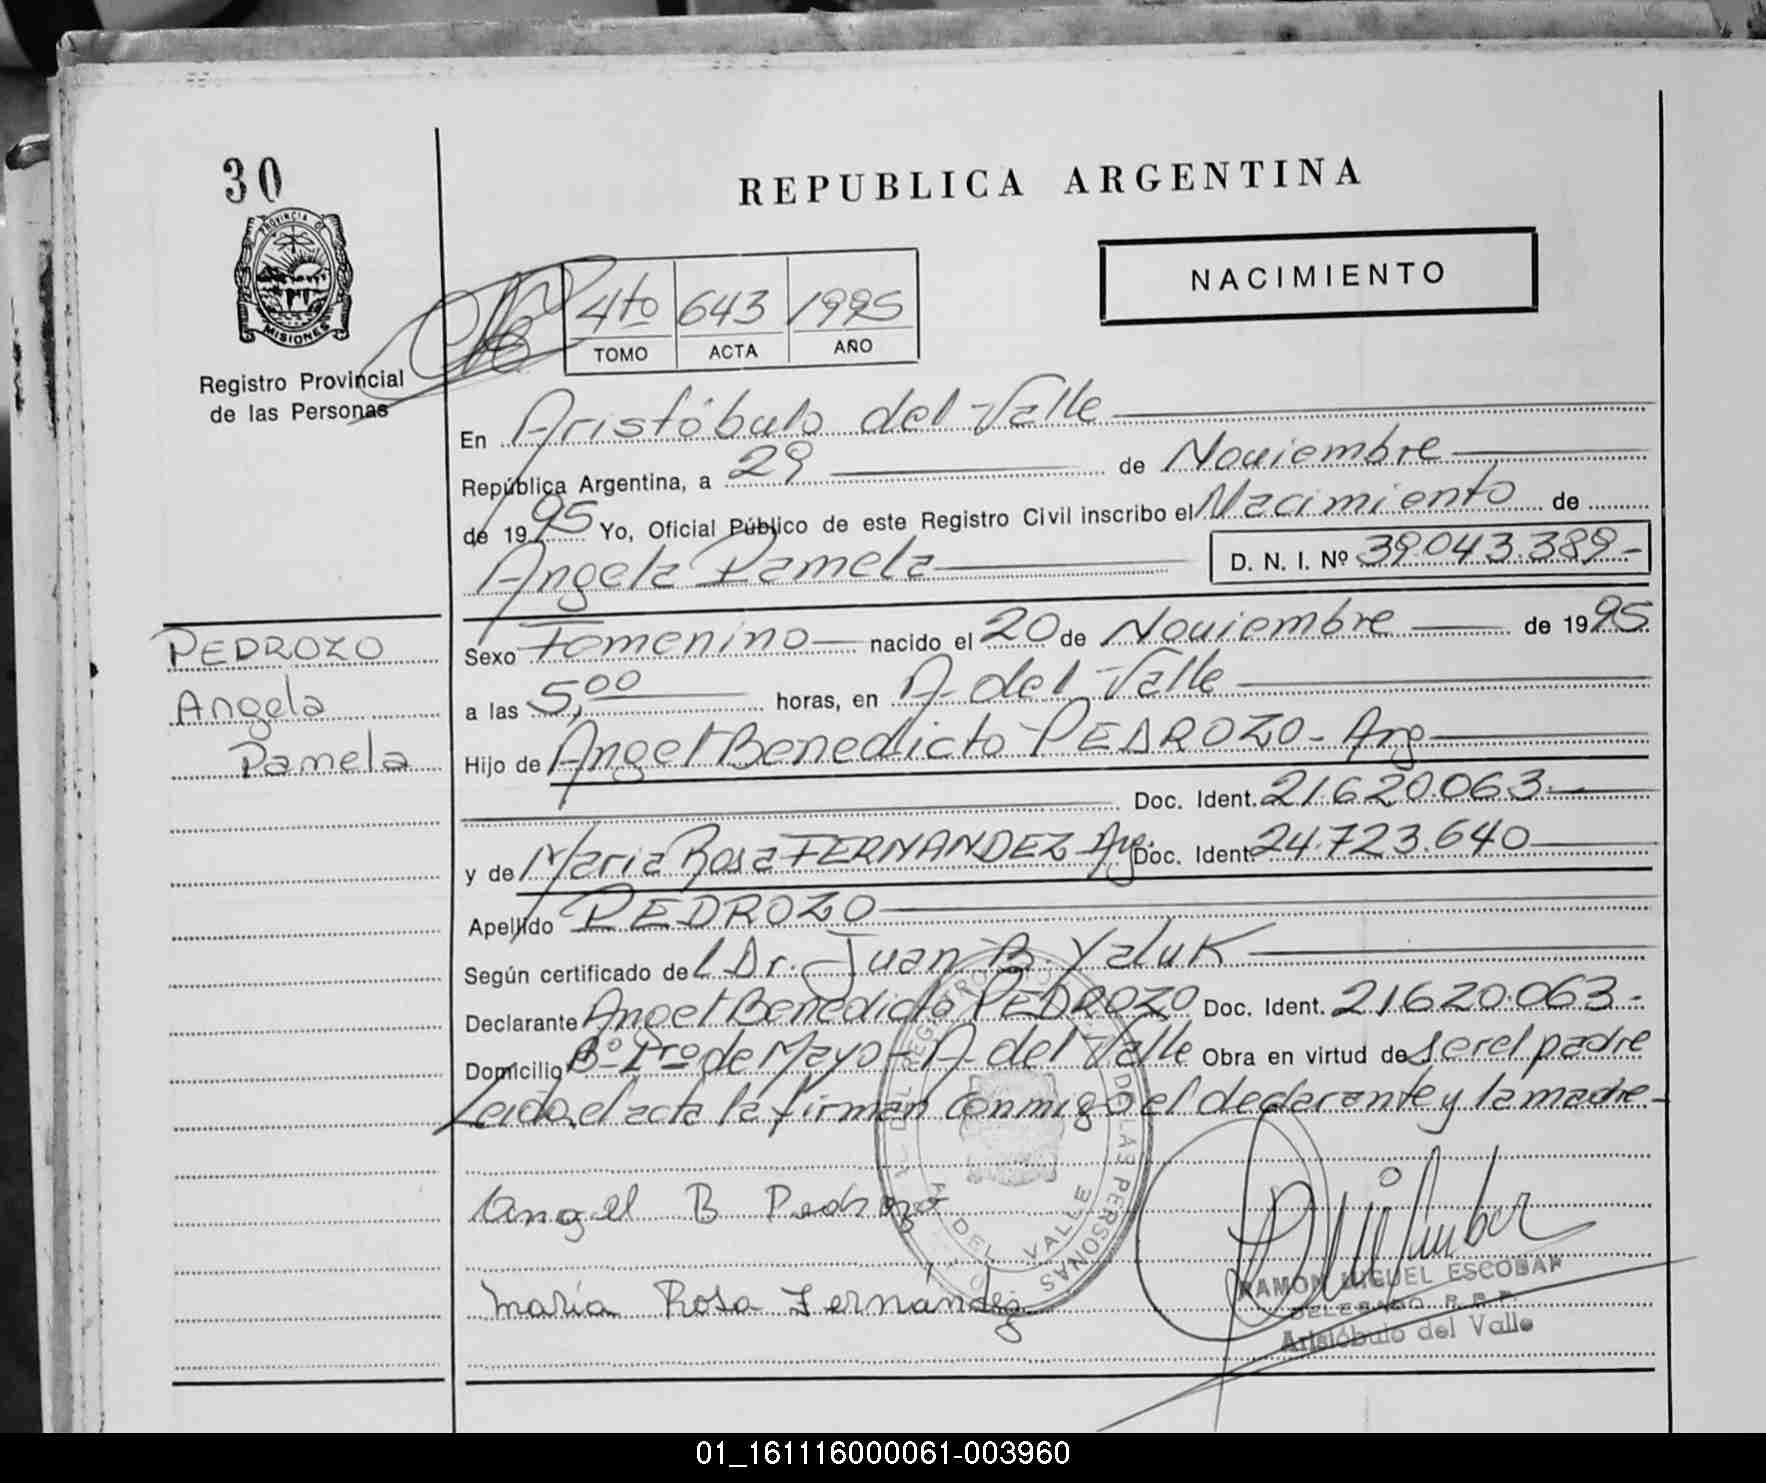 30
REPUBLICA ARGENTINA
PROVINCIA DE
MISIONES
Registro Provincial
de las Personas
NACIMIENTO
4to 643 1995
TOMO ACTA AÑO
En Aristóbulo del Valle
República Argentina, a 29 de Noviembre
de 1995 Yo, Oficial Público de este Registro Civil inscribo el Nacimiento de
Angela Pamela D. N. I. Nº 39.043.389-
PEDROZO
Angela
Pamela
Sexo Femenino nacido el 20 de Noviembre de 1995
a las 5,00 horas, en A. del Valle
Hijo de Angel Benedicto PEDROZO - Arg
Doc. Ident. 21.620.063
y de Maria Rosa FERNANDEZ Arg. Doc. Ident. 24.723.640
Apellido PEDROZO
Según certificado del Dr. Juan B. Yaluk
Declarante Angel Benedicto PEDROZO Doc. Ident. 21.620.063-
Domicilio Bº 1ro de Mayo - A. del Valle Obra en virtud de ser el padre
Leido el acta la firman conmigo el declarante y la madre-
A. DEL VALLE
Angel B Pedrozo
Maria Rosa Fernández
RAMON MIGUEL ESCOBAR
DELEGADO R. P. P.
Aristóbulo del Valle
01_161116000061-003960